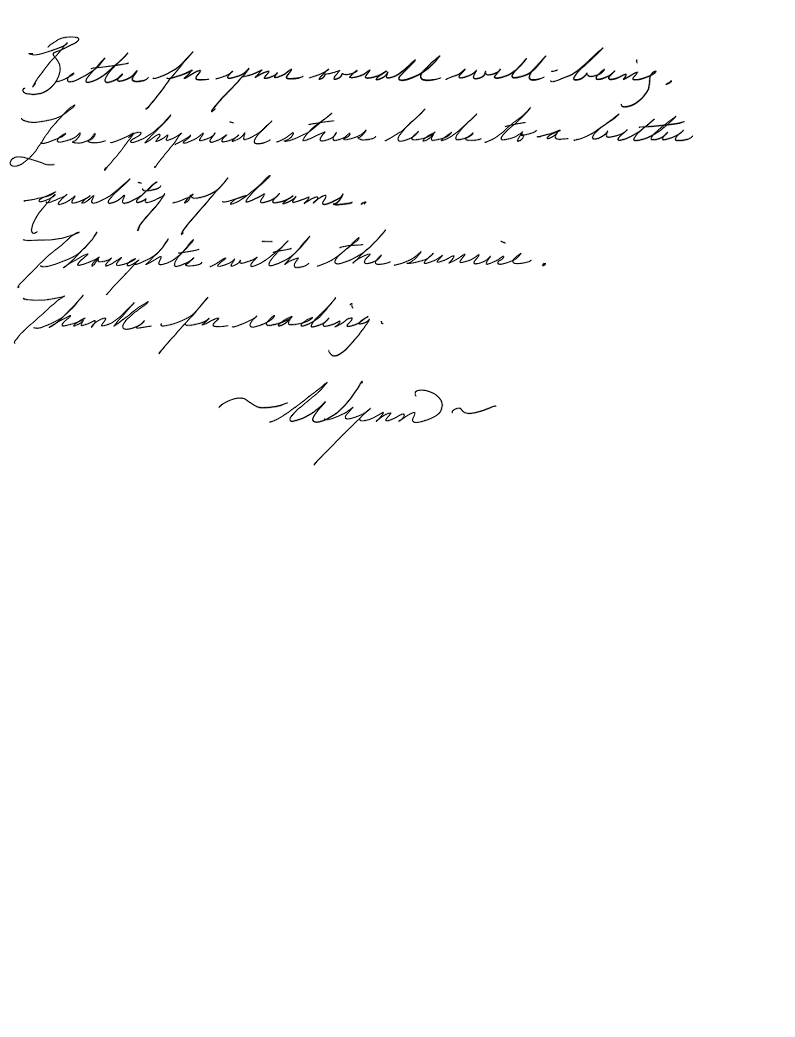 Better for your overall well-being.
Less physical stress leads to a better
quality of dreams.
Thoughts with the sunrise.
Thanks for reading.
~Wynn~